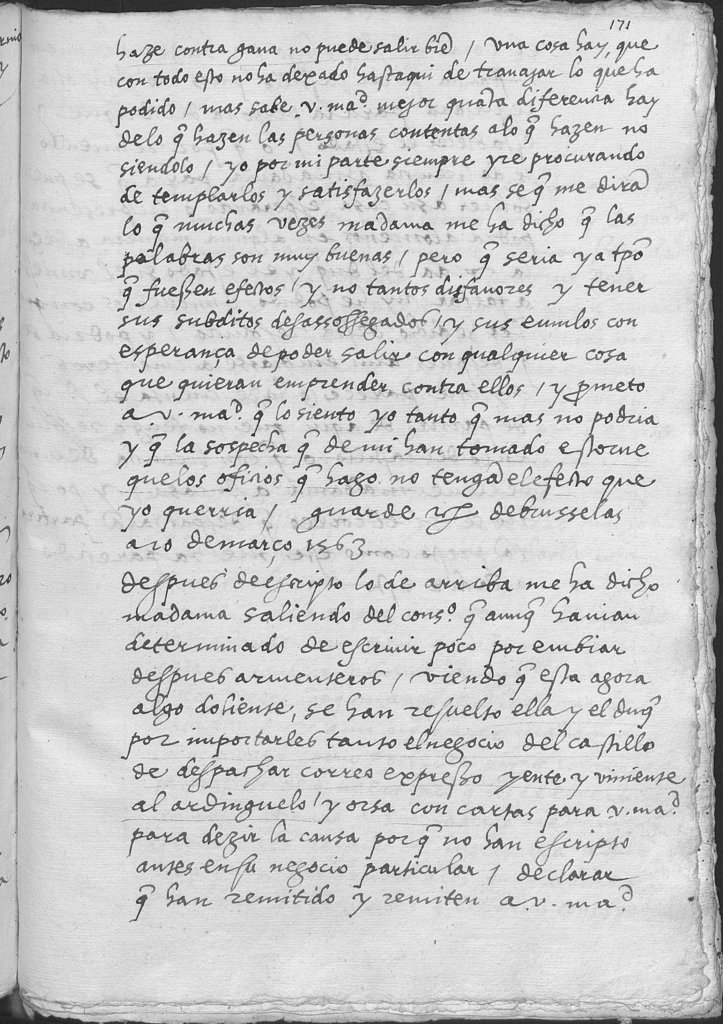 171
haze contra gana no puede salir biē / vna cosa hay, que
con todo esto no ha dexado hastaqui de trauajar lo que ha
podido / mas sabe .v. ma.d mejor quāta diferencia hay
delo q̄ hazen las personas contentas alo q̄ hazen no
siendolo / yo por mi parte siempre yre procurando
de templarlos y satisfazerlos / mas se q̄ me dirā
lo q̄ muchas vezes madama me ha dicho q̄ las
palabras son muy buenas / pero q̄ seria ya tpō
q̄ fuessen efectos / y no tantos disfauores y tener
sus subditos desassossegados / y sus emulos con
esperança de poder salir con qualquier cosa
que quieran emprender contra ellos / y prometo
a .v. ma.d q̄ lo siento yo tanto q̄ mas no podria
y q̄ la sospecha q̄ de mi han tomado estorue
que los oficios q̄ hago no tengā el efecto que
yo querria / guarde de brusselas
a 10 de março 1563
despues de escripto lo de arriba me ha dicho
madama saliendo del cons.o q̄ aunq̄ hauian
determinado de escriuir poco por embiar
despues armenteros / viendo q̄ esta agora
algo doliente, se han resuelto ella y el duq̄
por importarles tanto el negocio del castillo
de despachar correo expresso yente y viniente
al ardinguelo / y orsa con cartas para v. ma.d
para dezir la causa por q̄ no han escripto
antes en su negocio particular / declarar
q̄ han remitido y remiten a .v. ma.d